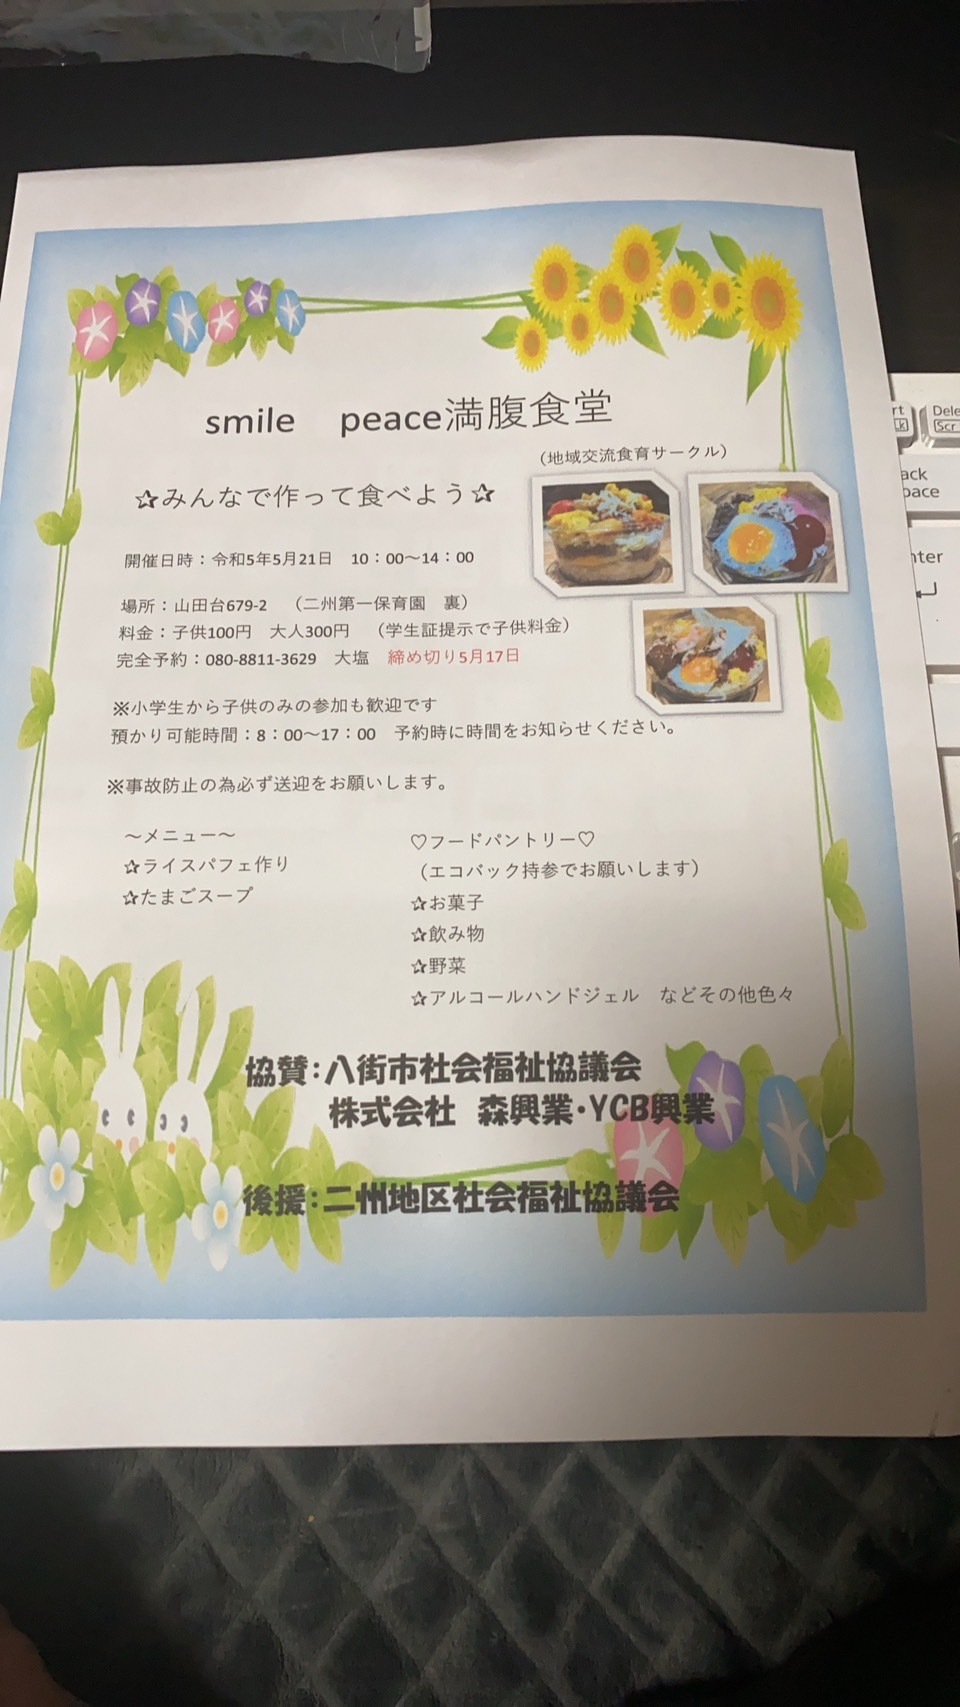 smile peace満腹食堂
（地域交流食育サークル）
☆みんなで作って食べよう☆
開催日時：令和5年5月21日 10：00～14：00
場所：山田台679-2 （二州第一保育園 裏）
料金：子供100円 大人300円 （学生証提示で子供料金）
完全予約：080-8811-3629 大塩 締め切り5月17日
※小学生から子供のみの参加も歓迎です
預かり可能時間：8：00～17：00 予約時に時間をお知らせください。
※事故防止の為必ず送迎をお願いします。
～メニュー～
☆ライスパフェ作り
☆たまごスープ
♡フードパントリー♡
（エコバック持参でお願いします）
☆お菓子
☆飲み物
☆野菜
☆アルコールハンドジェル などその他色々
協賛：八街市社会福祉協議会
株式会社 森興業・YCB興業
後援：二州地区社会福祉協議会